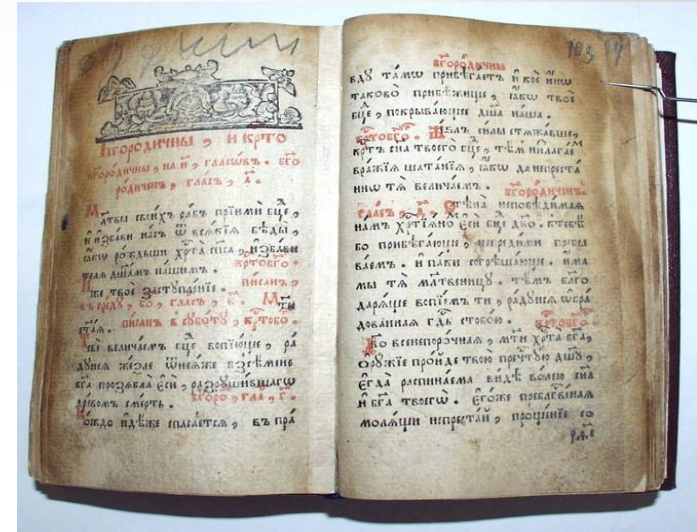 Бгоро́дичны , и крⷭ҇то
бгоро́дичны , на. и҃ , гла́сѡвъ . бг҃о
роди́ченъ , гла́съ , а҃ .
Мл҃твы свои́хъ ра́бъ прїимѝ бц҃е ,
и҆ и҆зба́ви на́съ ѿ вся́кїѧ бѣды̀ ,
ꙗ҆́кѡ ро́ждьши хрⷭ҇та̀ сп҃са , и҆зба́ви
телѧ дш҃а́мъ на́шимъ . крⷭ҇тобг҃о .
И҆́же твоѐ заступле́нїе . пи́санъ ,
въ сре́дꙋ , бо , гла́съ , в҃ . Мт҃и
ст҃а́ѧ . пи́санъ в сꙋбо́тꙋ , крⷭ҇тобо .
Тебѐ велича́емъ бц҃е вопїю́ще , ра́
дꙋйсѧ же́зле ѿнегѡ́же безсѣ́мене
бг҃а прозѧбла̀ є҆сѝ , разрꙋши́вшаго
дре́вомъ сме́рть . бг҃оро , гла , г҃ .
Ко́ждо и҆дѣ́же спаса́етсѧ , въ пра́
бг҃оро́дичны
103
вдꙋ та́мѡ прибѣга́етъ и҆ ко́е и҆́нѡ
таково̀ прибѣ́жище , ꙗ҆́кѡ твоѐ
бц҃е , покрыва́ющее дш҃а на́ша .
крⷭ҇тобг҃о .
кр҃тъ сн҃а твоегѡ̀ бц҃е , тѣ́мъ низлага́ем
вра́жїѧ шата́нїѧ , ꙗ҆́кѡ да непреста́
ннѡ тѧ̀ велича́емъ . бг҃оро́диченъ
гла́съ , д҃ . Стѣна̀ неѡбори́маѧ
на́мъ хрⷭ҇тїа́нѡ є҆сѝ бц҃е дв҃о . ктебѣ́
бо прибѣга́юще , невреди́ми пребы
ва́емъ . и҆ па́ки согрѣша́юще . и҆́ма
мы тѧ̀ мл҃твенницꙋ . тѣ́мъ бл҃го
даря́ще вопїе́мъ ти , ра́дꙋйсѧ ѡ҆бра́
до́ваннаѧ гд҃ь стобо́ю . крⷭ҇тобг҃о .
Дв҃о всенепоро́чнаѧ , мт҃и хрⷭ҇та̀ бг҃а ,
о҆рꙋ́жїе про́йде твою̀ прест҃ꙋ́ю дш҃ꙋ ,
є҆гда̀ распина́ема ви́дѣ во́лею сн҃а
и҆ бг҃а твоегѡ̀ . є҆го́же пребл҃гве́наѧ
молѧ́щи непреста́й , проще́нїе со